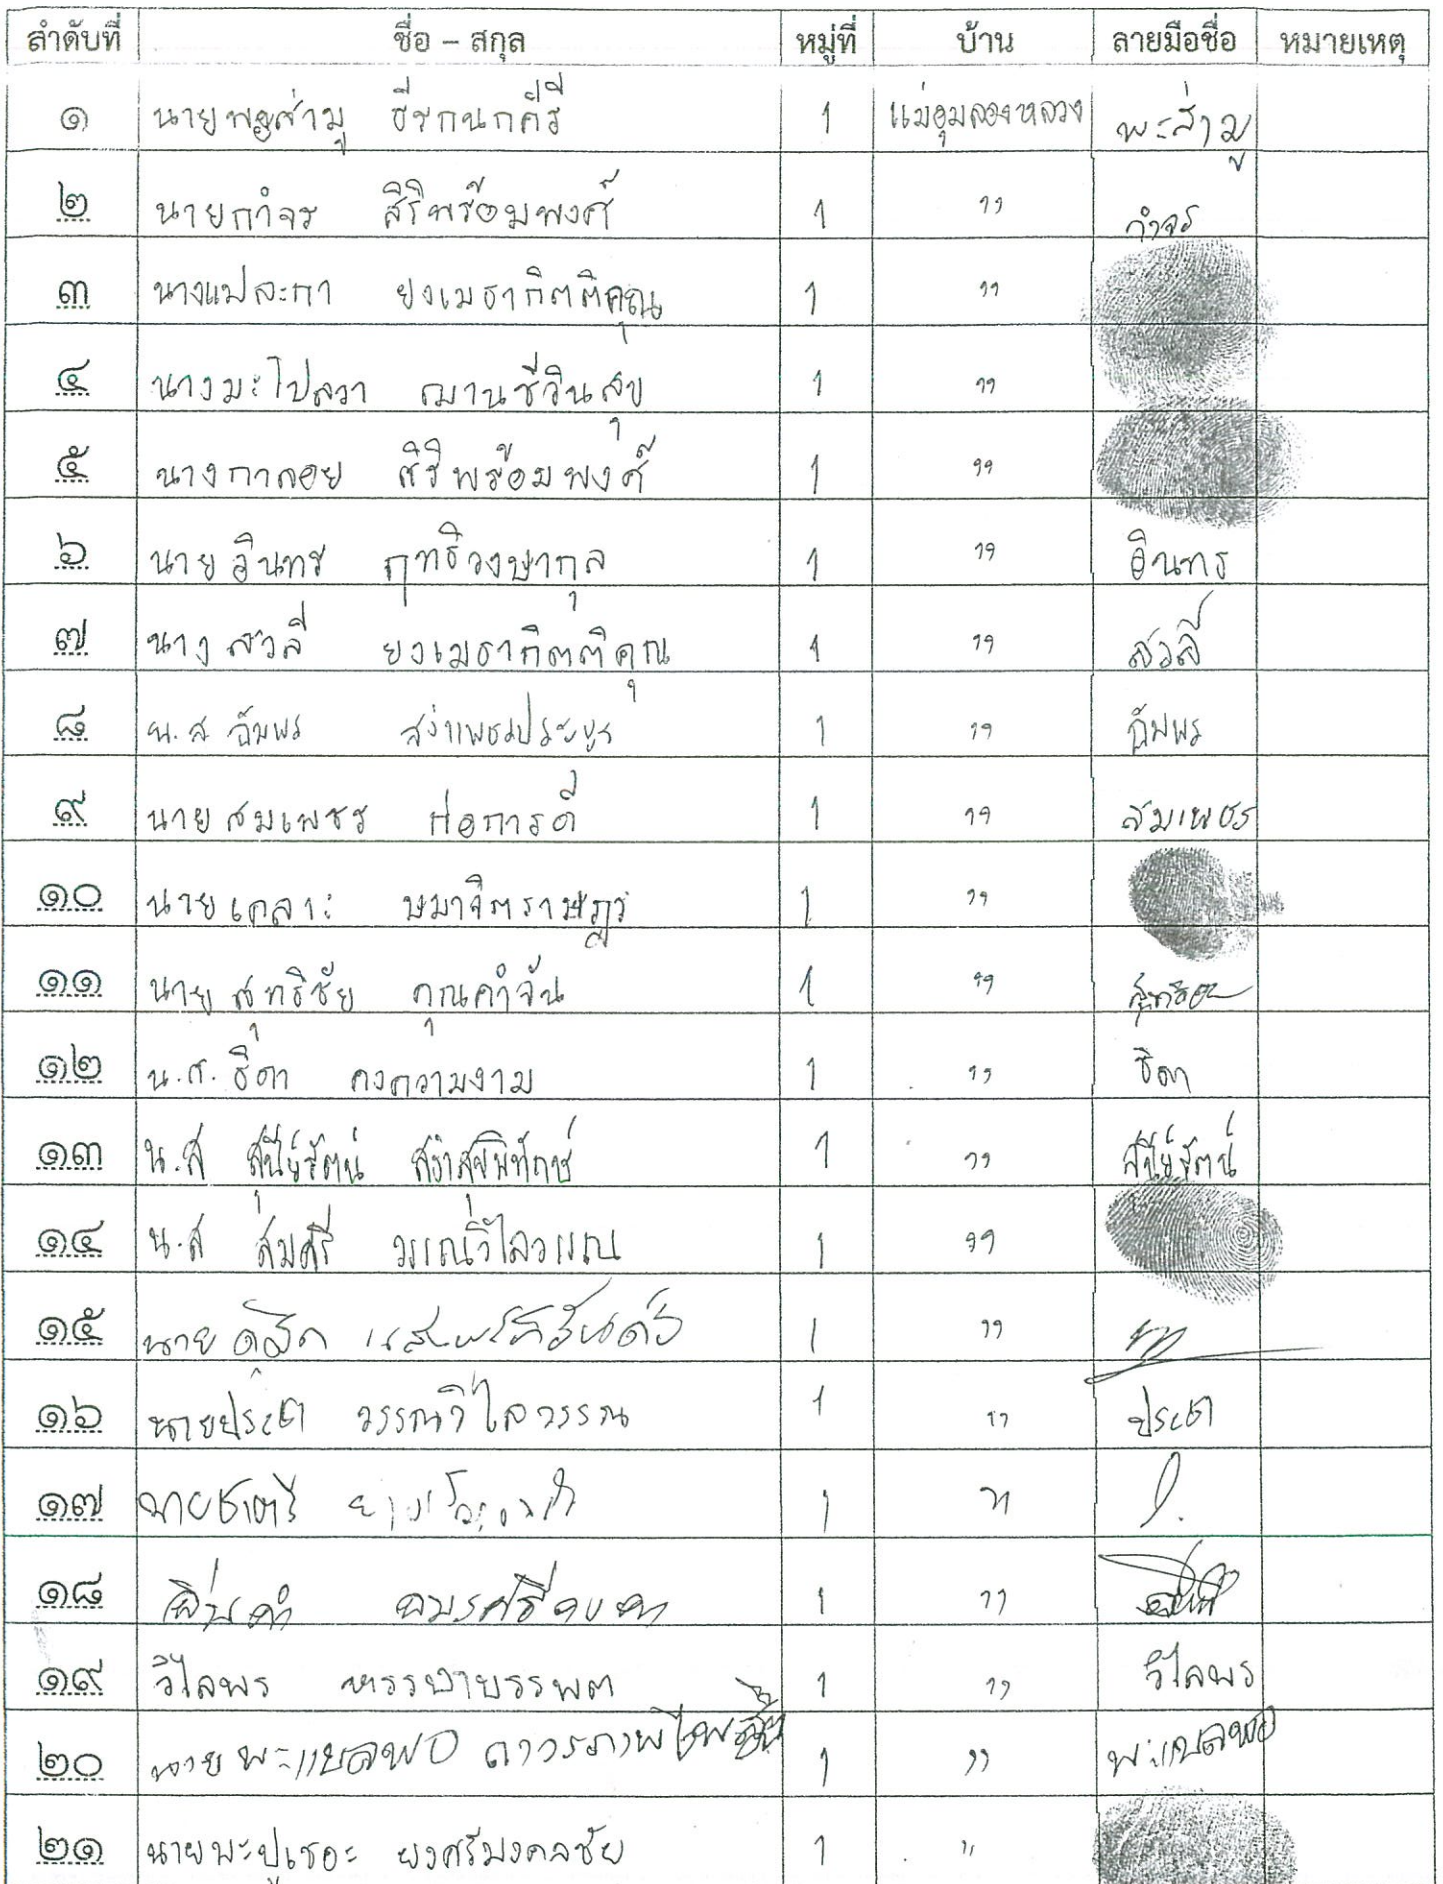 ลำดับที่ ชื่อ – สกุล หมู่ที่ บ้าน ลายมือชื่อ หมายเหตุ
๑ นายพะส่ามู ธีรกนกคีรี 1 แม่อุมลองหลวง พะส่ามู
๒ นายกำจร สิริพร้อมพงศ์ 1 ,, กำจร
๓ นางแปละกา ยงเมธากิตติคุณ 1 ,,
๔ นางมะไปลวา ฌานชีวินสุข 1 ,,
๕ นางกาลอย สิริพร้อมพงศ์ 1 ,,
๖ นายอินทร ฤทธิวงษากุล 1 ,, อินทร
๗ นางสวลี ยงเมธากิตติคุณ 1 ,, สวลี
๘ น.ส. 1 ,,
๙ นายสมเพชร ก่อการดี 1 ,, สมเพชร
๑๐ นายเคลาะ 1 ,,
๑๑ นายสุทธิชัย คุณคำจัน 1 ,,
๑๒ น.ส. ธิดา คงความงาม 1 ,, ธิดา
๑๓ น.ส สุนีย์รัตน์ 1 ,, สุนีย์รัตน์
๑๔ น.ส สุ่มศรี วรรณวิไลวรรณ 1 ,,
๑๕ นาย 1 ,,
๑๖ นายประเต วรรณวิไลวรรณ 1 ,, ประเต
๑๗ นายชาตรี 1 ,,
๑๘ 1 ,,
๑๙ วิไลพร หรรษาบรรพต 1 ,, วิไลพร
๒๐ นายพะแบลพอ ถาวรภาพไพรสิน 1 ,, พะแบลพอ
๒๑ นายพะปูเชอะ ยงศรีมงคลชัย 1 ,,